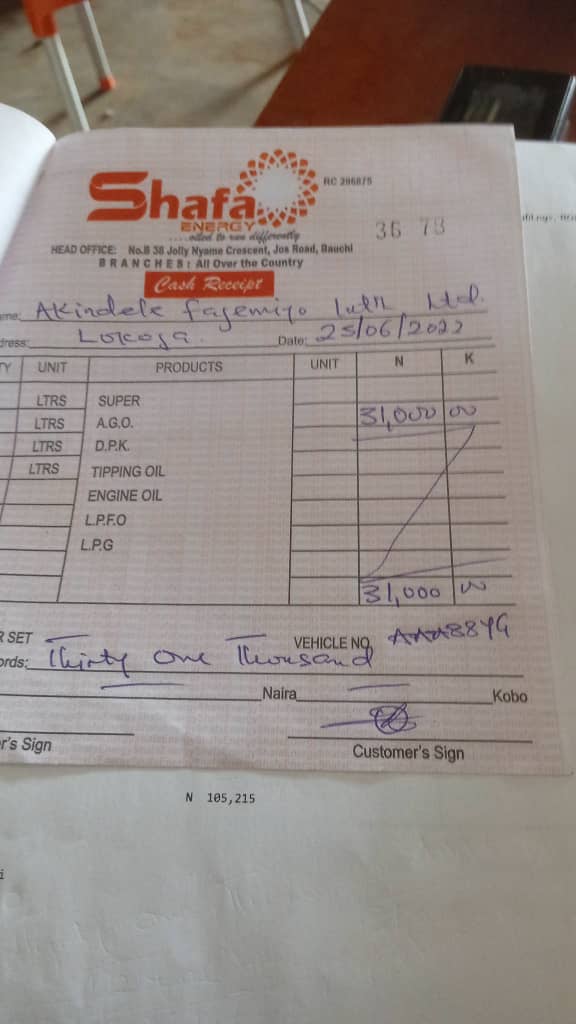 Shafa
ENERGY
....oiled to run differently
RC 296875
36 78
HEAD OFFICE: No.B 38 Jolly Nyame Crescent, Jos Road, Bauchi
BRANCHES: All Over the Country
Cash Receipt
ame: Akindele Fajemiyo Intr Ltd.
dress: Lokoja. Date: 25/06/2022
TY UNIT PRODUCTS UNIT N K
LTRS SUPER
LTRS A.G.O. 31,000 00
LTRS D.P.K.
LTRS TIPPING OIL
ENGINE OIL
L.P.F.O
L.P.G
31,000 00
R SET VEHICLE NO
ords: Thirty One Thousand
Naira Kobo
r's Sign Customer's Sign
N 105,215